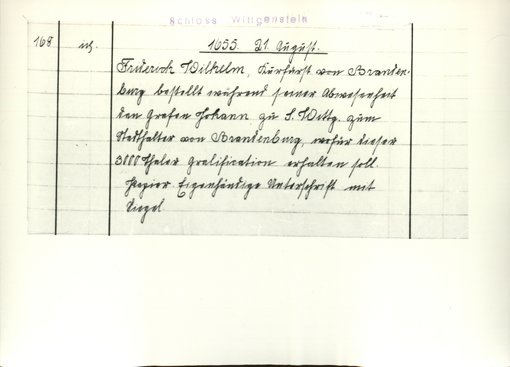 Schloss Wittgenstein
168 1655. 21. August.
Friderich Wilhelm, Kurfürst von Branden-
burg bestellt während seiner Abwesenheit
den Grafen Johann zu S. Wittg. zum
Stadthalter von Brandenburg, wofür dieser
3000 Thaler Gratification erhalten soll.
Papier Eigenhändige Unterschrift mit
Siegel